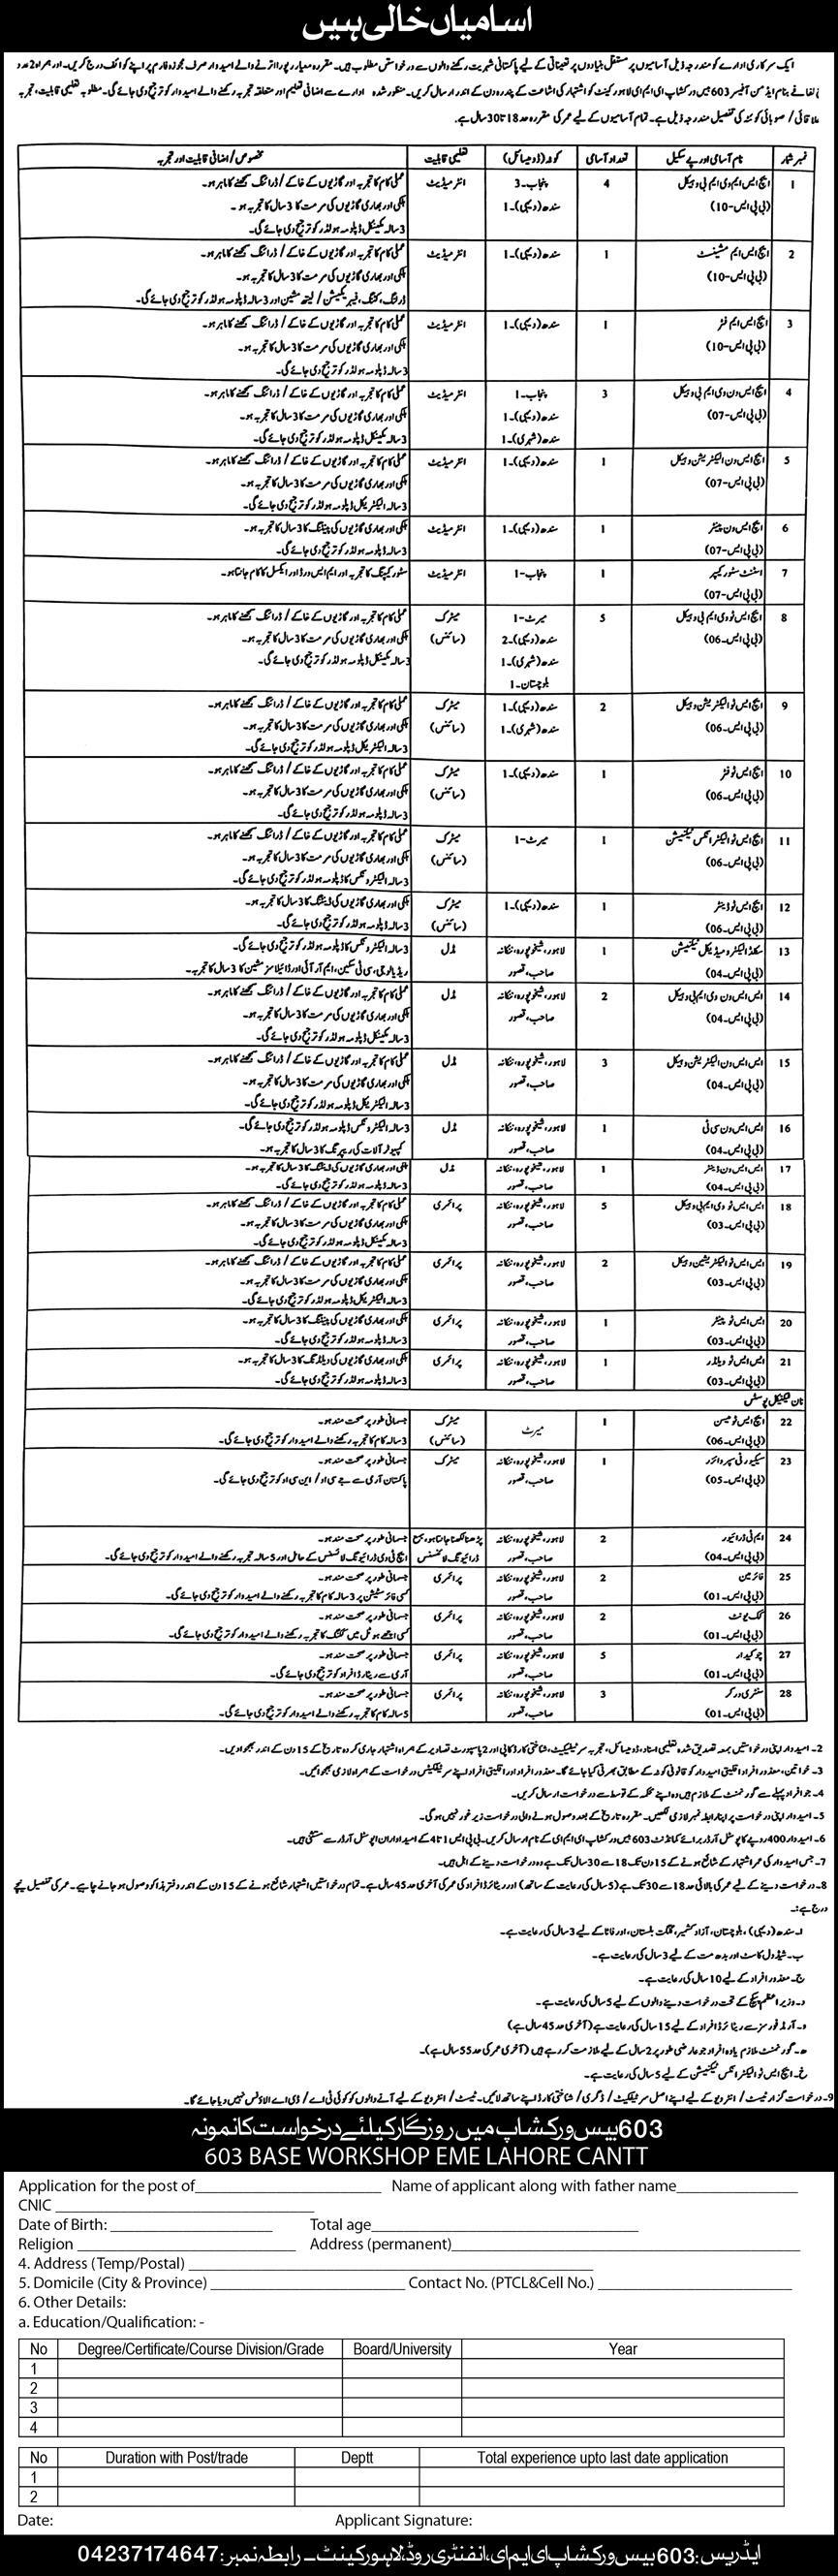 اسامیاں خالی ہیں
ایک سرکاری ادارے کو مندرجہ ذیل آسامیوں پر مستقل بنیادوں پر تعیناتی کے لیے پاکستانی شہریت رکھنے والوں سے درخواستیں مطلوب ہیں۔ مقررہ معیار پر پورا اترنے والے امیدوار صرف مجوزہ فارم پر اپنے کوائف درج کریں۔ اور ہمراہ 2 عدد
لفافے بنام ایڈمن آفیسر 603 بیس ورکشاپ ای ایم ای لاہور کینٹ کو اشتہار کی اشاعت کے پندرہ دن کے اندر ارسال کریں۔ منظور شدہ ادارے سے اضافی تعلیم اور متعلقہ تجربہ رکھنے والے امیدوار کو ترجیح دی جائے گی۔ مطلوبہ تعلیمی قابلیت، تجربہ
علاقائی / صوبائی کوٹہ کی تفصیل مندرجہ ذیل ہے۔ تمام آسامیوں کے لیے عمر کی مقررہ حد 18 تا 30 سال ہے۔
نمبر شمار نام آسامی اور پے سکیل تعداد آسامی کوٹہ (ڈومیسائل) تعلیمی قابلیت مخصوص / اضافی قابلیت اور تجربہ
1 ایچ ایس ایم وی ایم بی وہیکل 4 پنجاب-3 انٹرمیڈیٹ عملی کام کا تجربہ اور گاڑیوں کے خاکے / ڈرائنگ سمجھنے کا ماہر ہو۔
(بی پی ایس-10) سندھ (دیہی)-1 ہلکی اور بھاری گاڑیوں کی مرمت کا 3 سال کا تجربہ ہو۔
3 سالہ مکینکل ڈپلومہ ہولڈر کو ترجیح دی جائے گی۔
2 ایچ ایس ایم مشینسٹ 1 سندھ (دیہی)-1 انٹرمیڈیٹ عملی کام کا تجربہ اور گاڑیوں کے خاکے / ڈرائنگ سمجھنے کا ماہر ہو۔
(بی پی ایس-10) ہلکی اور بھاری گاڑیوں کی مرمت کا 3 سال کا تجربہ ہو۔
ڈرلنگ، کٹنگ، فیبریکیشن / لیتھ مشین اور 3 سالہ ڈپلومہ ہولڈر کو ترجیح دی جائے گی۔
3 ایچ ایس ایم فٹر 1 سندھ (دیہی)-1 انٹرمیڈیٹ عملی کام کا تجربہ اور گاڑیوں کے خاکے / ڈرائنگ سمجھنے کا ماہر ہو۔
(بی پی ایس-10) ہلکی اور بھاری گاڑیوں کی مرمت کا 3 سال کا تجربہ ہو۔
3 سالہ ڈپلومہ ہولڈر کو ترجیح دی جائے گی۔
4 ایچ ایس ون وی ایم بی وہیکل 3 پنجاب-1 انٹرمیڈیٹ عملی کام کا تجربہ اور گاڑیوں کے خاکے / ڈرائنگ سمجھنے کا ماہر ہو۔
(بی پی ایس-07) سندھ (دیہی)-1 ہلکی اور بھاری گاڑیوں کی مرمت کا 3 سال کا تجربہ ہو۔
سندھ (شہری)-1 3 سالہ مکینکل ڈپلومہ ہولڈر کو ترجیح دی جائے گی۔
5 ایچ ایس ون الیکٹریشن وہیکل 1 سندھ (دیہی)-1 انٹرمیڈیٹ عملی کام کا تجربہ اور گاڑیوں کے خاکے / ڈرائنگ سمجھنے کا ماہر ہو۔
(بی پی ایس-07) ہلکی اور بھاری گاڑیوں کی مرمت کا 3 سال کا تجربہ ہو۔
3 سالہ الیکٹریکل ڈپلومہ ہولڈر کو ترجیح دی جائے گی۔
6 ایچ ایس ون پینٹر 1 سندھ (دیہی)-1 انٹرمیڈیٹ ہلکی اور بھاری گاڑیوں کی پینٹنگ کا 3 سال کا تجربہ ہو۔
(بی پی ایس-07) 3 سالہ ڈپلومہ ہولڈر کو ترجیح دی جائے گی۔
7 اسسٹنٹ سٹور کیپر 1 پنجاب-1 انٹرمیڈیٹ سٹور کیپنگ کا تجربہ اور ایم ایس ورڈ اور ایکسل کا کام جانتا ہو۔
(بی پی ایس-07)
8 ایچ ایس ٹو وی ایم بی وہیکل 5 میرٹ-1 میٹرک عملی کام کا تجربہ اور گاڑیوں کے خاکے / ڈرائنگ سمجھنے کا ماہر ہو۔
(بی پی ایس-06) سندھ (دیہی)-2 (سائنس) ہلکی اور بھاری گاڑیوں کی مرمت کا 3 سال کا تجربہ ہو۔
سندھ (شہری)-1 3 سالہ مکینکل ڈپلومہ ہولڈر کو ترجیح دی جائے گی۔
بلوچستان-1
9 ایچ ایس ٹو الیکٹریشن وہیکل 2 سندھ (دیہی)-1 میٹرک عملی کام کا تجربہ اور گاڑیوں کے خاکے / ڈرائنگ سمجھنے کا ماہر ہو۔
(بی پی ایس-06) سندھ (شہری)-1 (سائنس) ہلکی اور بھاری گاڑیوں کی مرمت کا 3 سال کا تجربہ ہو۔
3 سالہ الیکٹریکل ڈپلومہ ہولڈر کو ترجیح دی جائے گی۔
10 ایچ ایس ٹو فٹر 1 سندھ (دیہی)-1 میٹرک عملی کام کا تجربہ اور گاڑیوں کے خاکے / ڈرائنگ سمجھنے کا ماہر ہو۔
(بی پی ایس-06) (سائنس) ہلکی اور بھاری گاڑیوں کی مرمت کا 3 سال کا تجربہ ہو۔
3 سالہ ڈپلومہ ہولڈر کو ترجیح دی جائے گی۔
11 ایچ ایس ٹو الیکٹرانکس ٹیکنیشن 1 میرٹ-1 میٹرک عملی کام کا تجربہ اور گاڑیوں کے خاکے / ڈرائنگ سمجھنے کا ماہر ہو۔
(بی پی ایس-06) (سائنس) ہلکی اور بھاری گاڑیوں کی مرمت کا 3 سال کا تجربہ ہو۔
3 سالہ الیکٹرونکس کا ڈپلومہ ہولڈر کو ترجیح دی جائے گی۔
12 ایچ ایس ٹو ڈینٹر 1 سندھ (دیہی)-1 میٹرک ہلکی اور بھاری گاڑیوں کی ڈینٹنگ کا 3 سال کا تجربہ ہو۔
(بی پی ایس-06) (سائنس) 3 سالہ ڈپلومہ ہولڈر کو ترجیح دی جائے گی۔
13 سکلڈ الیکٹرو میڈیکل ٹیکنیشن 1 لاہور، شیخوپورہ، ننکانہ مڈل 3 سالہ الیکٹرونکس کا ڈپلومہ ہولڈر کو ترجیح دی جائے گی۔
(بی پی ایس-04) صاحب، قصور ریڈیالوجی، سی ٹی سکین، ایم آر آئی اور ڈائیلاسز مشین کا 3 سال کا تجربہ۔
14 ایس ایس ون وی ایم بی وہیکل 2 لاہور، شیخوپورہ، ننکانہ مڈل عملی کام کا تجربہ اور گاڑیوں کے خاکے / ڈرائنگ سمجھنے کا ماہر ہو۔
(بی پی ایس-04) صاحب، قصور ہلکی اور بھاری گاڑیوں کی مرمت کا 3 سال کا تجربہ ہو۔
3 سالہ مکینکل ڈپلومہ ہولڈر کو ترجیح دی جائے گی۔
15 ایس ایس ون الیکٹریشن وہیکل 3 لاہور، شیخوپورہ، ننکانہ مڈل عملی کام کا تجربہ اور گاڑیوں کے خاکے / ڈرائنگ سمجھنے کا ماہر ہو۔
(بی پی ایس-04) صاحب، قصور ہلکی اور بھاری گاڑیوں کی مرمت کا 3 سال کا تجربہ ہو۔
3 سالہ الیکٹریکل ڈپلومہ ہولڈر کو ترجیح دی جائے گی۔
16 ایس ایس ون سی ٹی 1 لاہور، شیخوپورہ، ننکانہ مڈل 3 سالہ الیکٹرونکس ڈپلومہ ہولڈر کو ترجیح دی جائے گی۔
(بی پی ایس-04) صاحب، قصور کمپیوٹر آلات کی ریپیرنگ کا 3 سال کا تجربہ ہو۔
17 ایس ایس ون ڈینٹر 1 لاہور، شیخوپورہ، ننکانہ مڈل ہلکی اور بھاری گاڑیوں کی ڈینٹنگ کا 3 سال کا تجربہ ہو۔
(بی پی ایس-04) صاحب، قصور 3 سالہ ڈپلومہ ہولڈر کو ترجیح دی جائے گی۔
18 ایس ایس ٹو وی ایم بی وہیکل 5 لاہور، شیخوپورہ، ننکانہ پرائمری عملی کام کا تجربہ اور گاڑیوں کے خاکے / ڈرائنگ سمجھنے کا ماہر ہو۔
(بی پی ایس-03) صاحب، قصور ہلکی اور بھاری گاڑیوں کی مرمت کا 3 سال کا تجربہ ہو۔
3 سالہ مکینکل ڈپلومہ ہولڈر کو ترجیح دی جائے گی۔
19 ایس ایس ٹو الیکٹریشن وہیکل 2 لاہور، شیخوپورہ، ننکانہ پرائمری عملی کام کا تجربہ اور گاڑیوں کے خاکے / ڈرائنگ سمجھنے کا ماہر ہو۔
(بی پی ایس-03) صاحب، قصور ہلکی اور بھاری گاڑیوں کی مرمت کا 3 سال کا تجربہ ہو۔
3 سالہ الیکٹریکل ڈپلومہ ہولڈر کو ترجیح دی جائے گی۔
20 ایس ایس ٹو پینٹر 1 لاہور، شیخوپورہ، ننکانہ پرائمری ہلکی اور بھاری گاڑیوں کی پینٹنگ کا 3 سال کا تجربہ ہو۔
(بی پی ایس-03) صاحب، قصور 3 سالہ ڈپلومہ ہولڈر کو ترجیح دی جائے گی۔
21 ایس ایس ٹو ویلڈر 1 لاہور، شیخوپورہ، ننکانہ پرائمری ہلکی اور بھاری گاڑیوں کی ویلڈنگ کا 3 سال کا تجربہ ہو۔
(بی پی ایس-03) صاحب، قصور 3 سالہ ڈپلومہ ہولڈر کو ترجیح دی جائے گی۔
نان ٹیکنیکل پوسٹس
22 ایچ ایس ٹو میسن 1 میرٹ میٹرک جسمانی طور پر صحت مند ہو۔
(بی پی ایس-06) (سائنس) 3 سالہ کام کا تجربہ رکھنے والے امیدوار کو ترجیح دی جائے گی۔
23 سیکیورٹی سپروائزر 1 لاہور، شیخوپورہ، ننکانہ میٹرک جسمانی طور پر صحت مند ہو۔
(بی پی ایس-05) صاحب، قصور پاکستان آرمی سے جے سی او / این سی او کو ترجیح دی جائے گی۔
24 ایم ٹی ڈرائیور 2 لاہور، شیخوپورہ، ننکانہ پڑھنا لکھنا جانتا ہو، بمع جسمانی طور پر صحت مند ہو۔
(بی پی ایس-04) صاحب، قصور ڈرائیونگ لائسنس ایچ ٹی وی ڈرائیونگ لائسنس کے حامل اور 5 سالہ تجربہ رکھنے والے امیدوار کو ترجیح دی جائے گی۔
25 فائرمین 2 لاہور، شیخوپورہ، ننکانہ پرائمری جسمانی طور پر صحت مند ہو۔
(بی پی ایس-01) صاحب، قصور کسی فائر سٹیشن پر 3 سالہ کام کا تجربہ رکھنے والے امیدوار کو ترجیح دی جائے گی۔
26 کک یونٹ 2 لاہور، شیخوپورہ، ننکانہ پرائمری جسمانی طور پر صحت مند ہو۔
(بی پی ایس-01) صاحب، قصور کسی اچھے ہوٹل میں ککنگ کا تجربہ رکھنے والے امیدوار کو ترجیح دی جائے گی۔
27 چوکیدار 5 لاہور، شیخوپورہ، ننکانہ پرائمری جسمانی طور پر صحت مند ہو۔
(بی پی ایس-01) صاحب، قصور آرمی سے ریٹائرڈ افراد کو ترجیح دی جائے گی۔
28 سنٹری ورکر 3 لاہور، شیخوپورہ، ننکانہ پرائمری جسمانی طور پر صحت مند ہو۔
(بی پی ایس-01) صاحب، قصور 5 سالہ کام کا تجربہ رکھنے والے امیدوار کو ترجیح دی جائے گی۔
2- امیدوار اپنی درخواستیں بمعہ تصدیق شدہ تعلیمی اسناد، ڈومیسائل، تجربہ سرٹیفکیٹ، شناختی کارڈ کاپی اور 2 پاسپورٹ تصاویر کے ہمراہ اشتہار جاری کردہ تاریخ کے 15 دن کے اندر بھجوا دیں۔
3- خواتین، معذور افراد اقلیتی امیدوار کو قانونی کوٹہ کے مطابق بھرتی کیا جائے گا۔ معذور افراد اور اقلیتی افراد اپنے سرٹیفکیٹس درخواست کے ہمراہ لازمی بھجوائیں۔
4- جو افراد پہلے سے گورنمنٹ کے ملازم ہیں وہ اپنے محکمہ کے توسط سے درخواست ارسال کریں۔
5- امیدوار اپنی درخواست پر اپنا رابطہ نمبر لازمی لکھیں۔ مقررہ تاریخ کے بعد وصول ہونے والی درخواست زیر غور نہیں ہوگی۔
6- امیدوار 400 روپے کا پوسٹل آرڈر برائے کمانڈنٹ 603 بیس ورکشاپ ای ایم ای کے نام ارسال کریں۔ بی پی ایس 1 تا 4 کے امیدواران پوسٹل آرڈر سے مستثنیٰ ہیں۔
7- جس امیدوار کی عمر اشتہار کے شائع ہونے کے 15 دن تک 18 سے 30 سال تک ہے وہ درخواست دینے کے اہل ہیں۔
8- درخواست دینے کے لیے عمر کی بالائی حد 18 سے 30 تک ہے (5 سال کی رعایت کے ساتھ) اور ریٹائرڈ افراد کی عمر کی آخری حد 45 سال ہے۔ تمام درخواستیں اشتہار شائع ہونے کے 15 دن کے اندر دفتر ہذا کو وصول ہو جانے چاہیے۔ عمر کی تفصیل نیچے
درج ہے:۔
ا۔ سندھ (دیہی)، بلوچستان، آزاد کشمیر، گلگت بلتستان، اور فاٹا کے لیے 3 سال کی رعایت ہے۔
ب۔ شیڈول کاسٹ اور بدھ مت کے لیے 3 سال کی رعایت ہے۔
ج۔ معذور افراد کے لیے 10 سال کی رعایت ہے۔
د۔ وزیر اعظم پیکج کے تحت درخواست دینے والوں کے لیے 5 سال کی رعایت ہے۔
و۔ آرمڈ فورسز سے ریٹائرڈ افراد کے لیے 15 سال کی رعایت ہے (آخری حد 45 سال ہے)
ہ۔ گورنمنٹ ملازم یا وہ افراد جو عارضی طور پر 2 سال کے لیے ملازمت کر رہے ہیں (آخری عمر کی حد 55 سال ہے)۔
خ۔ ایچ ایس ٹو الیکٹرانکس ٹیکنیشن کے لیے 5 سال کی رعایت ہے۔
9- درخواست گزار ٹیسٹ / انٹرویو کے لیے اپنے اصل سرٹیفکیٹ / ڈگری / شناختی کارڈ اپنے ساتھ لائیں۔ ٹیسٹ / انٹرویو کے لیے آنے والوں کو کوئی ٹی اے / ڈی اے الاؤنس نہیں دیا جائے گا۔
603 بیس ورکشاپ میں روزگار کیلئے درخواست کا نمونہ
603 BASE WORKSHOP EME LAHORE CANTT
Application for the post of Name of applicant along with father name
CNIC
Date of Birth: Total age
Religion Address (permanent)
4. Address (Temp/Postal)
5. Domicile (City & Province) Contact No. (PTCL&Cell No.)
6. Other Details:
a. Education/Qualification: -
No Degree/Certificate/Course Division/Grade Board/University Year
1
2
3
4
No Duration with Post/trade Deptt Total experience upto last date application
1
2
Date: Applicant Signature:
ایڈریس: 603 بیس ورکشاپ ای ایم ای، انفنٹری روڈ، لاہور کینٹ ۔ رابطہ نمبر: 04237174647